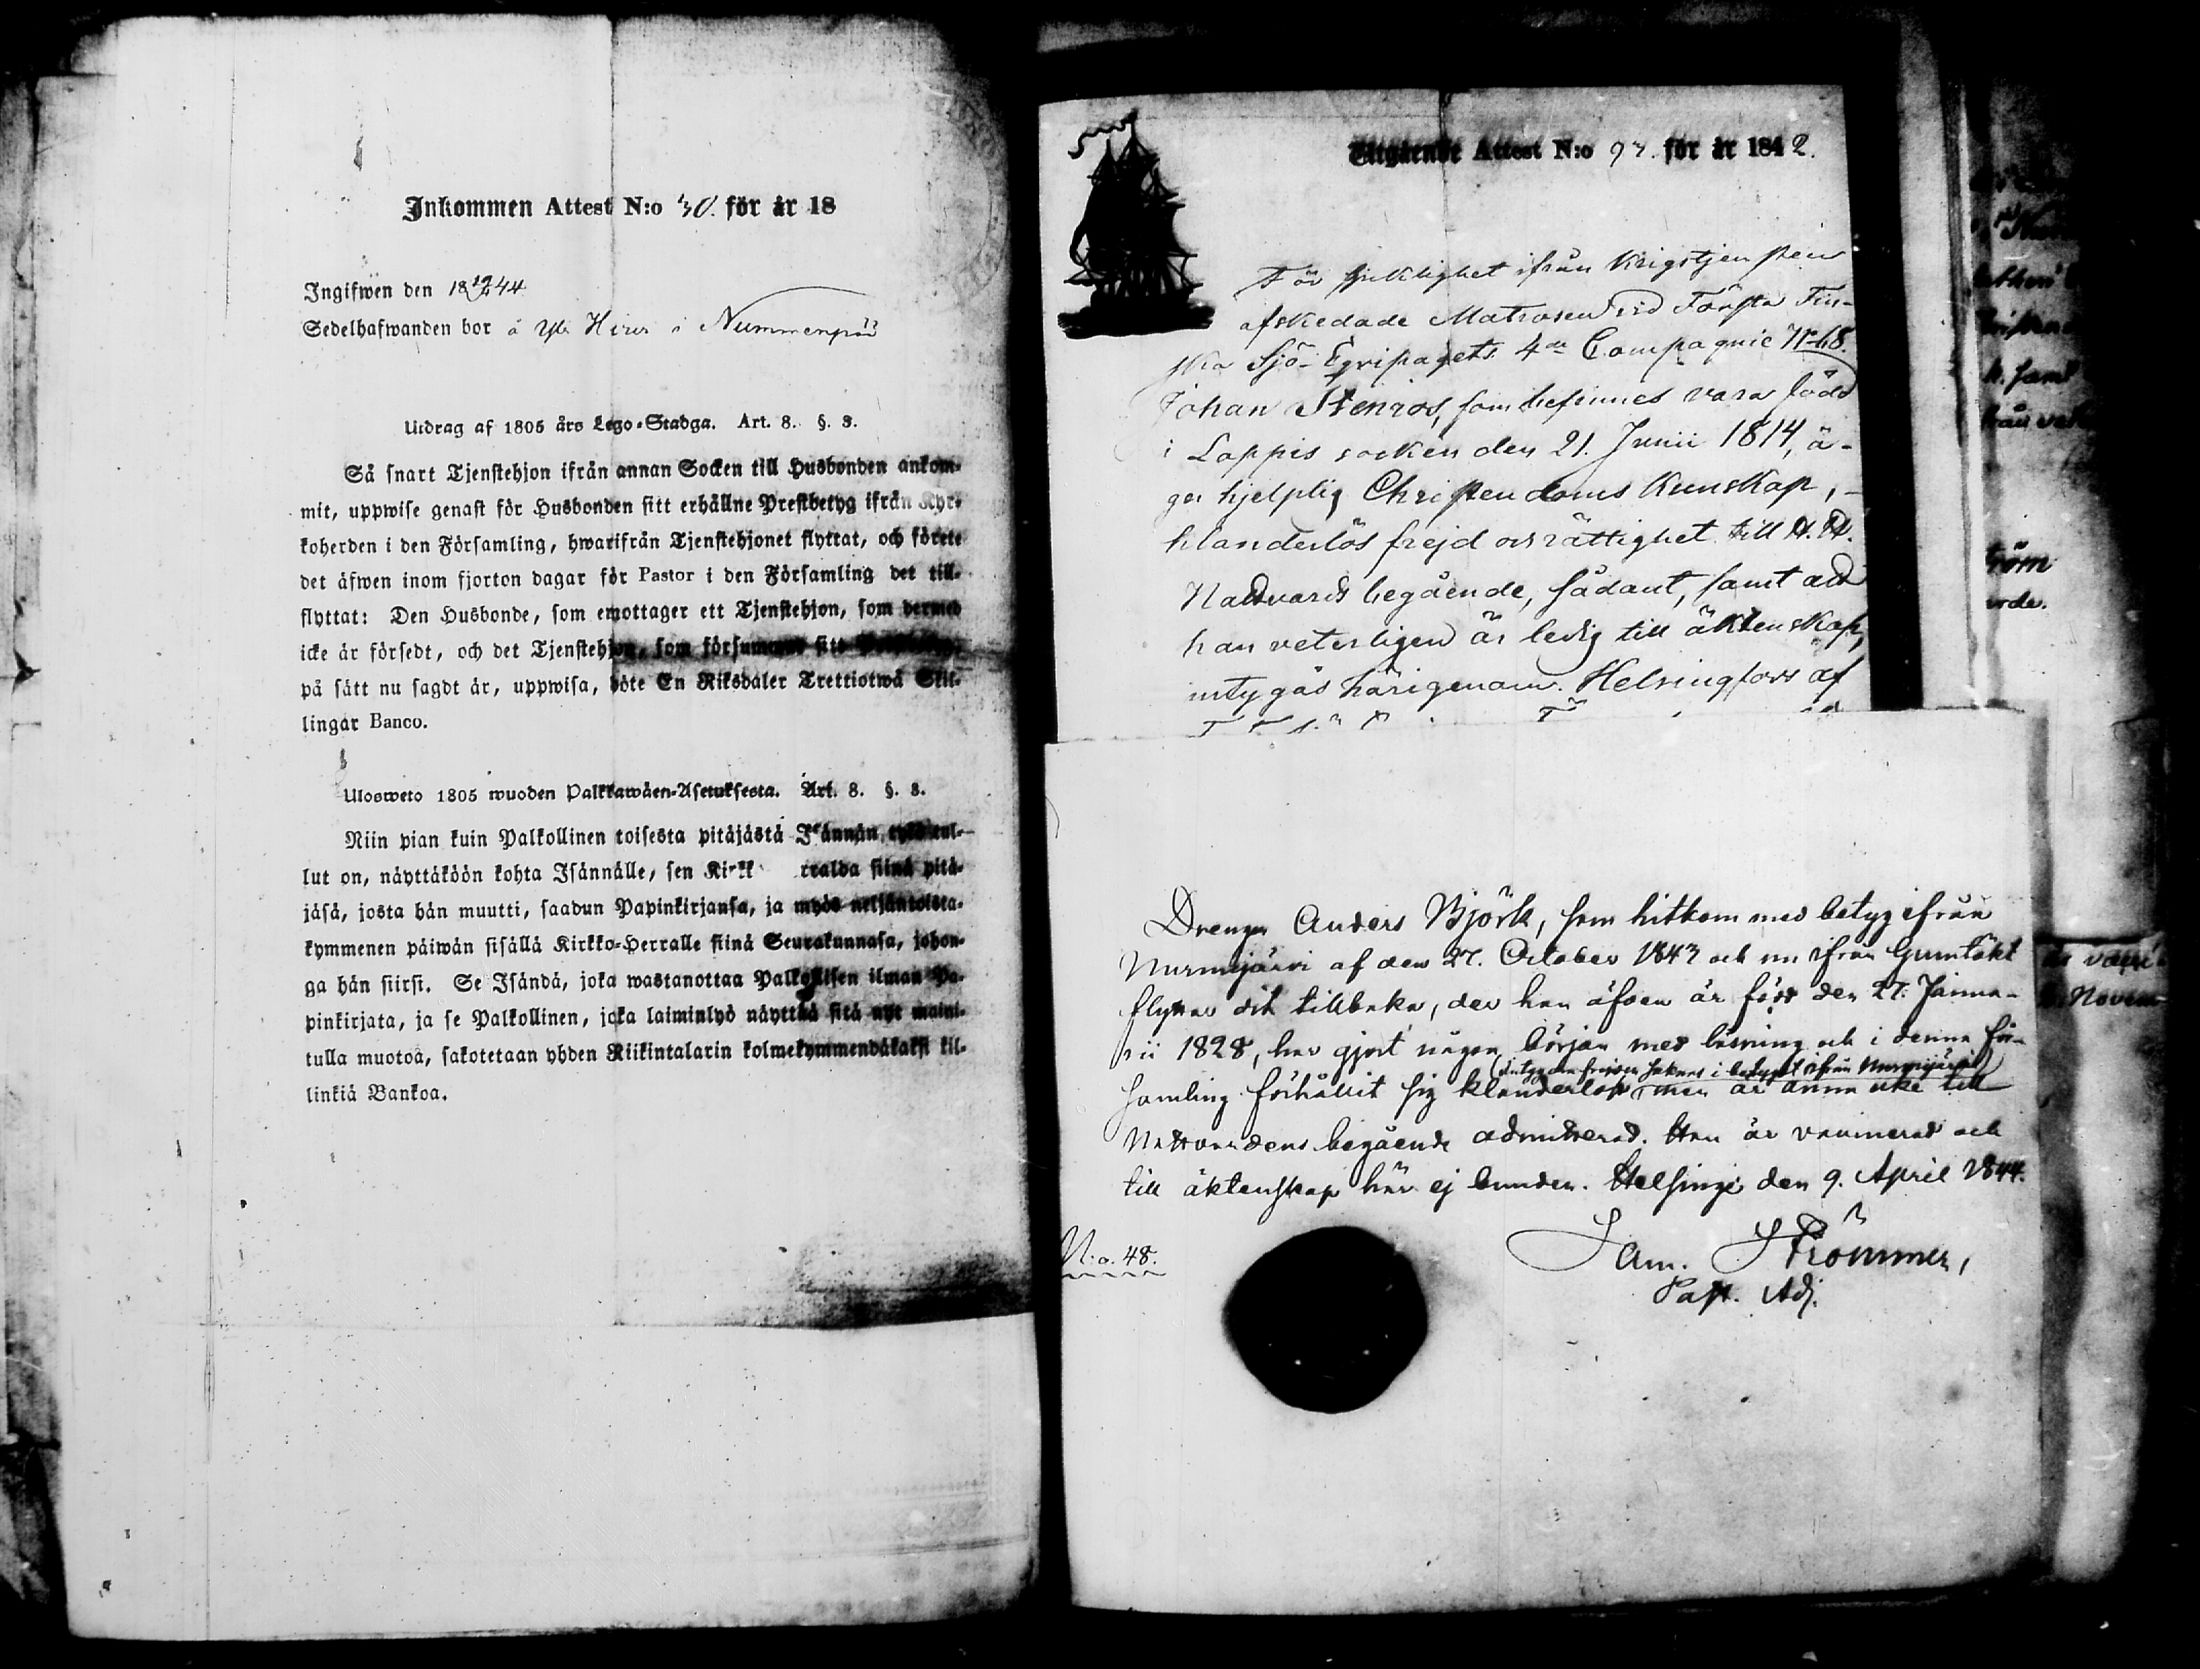 Inkommen Attest N:o 30. för år 18
Ingifwen den 18 19/4 44
Sedelhafwanden bor å Yli Hiiri i Nummenpää
Utdrag af 1805 års Lego-Stadga. Art. 8. §. 3.
Så snart Tjenstehjon ifrån annan Socken till Husbonden ankom-
mit, uppwise genast för Husbonden sitt erhållne Prestbetyg ifrån Kyr-
koherden i den Församling, hwarifrån Tjenstehjonet flyttat, och förete
det äfwen inom fjorton dagar för Pastor i den Församling det till-
flyttat: Den Husbonde, som emottager ett Tjenstehjon, som dermed
icke är försedt, och det Tjenstehjon, som försummar sitt
på sätt nu sagdt är, uppwisa, böte En Riksdaler Trettiotwå Skil-
lingar Banco.
Ulosweto 1805 wuoden Palkkawäen-Asetuksesta. Art. 8. §. 3.
Niin pian kuin Palkollinen toisesta pitäjästä Isännän tykö tul-
lut on, näyttäköön kohta Isännälle, sen Kirkk rralda siinä pitä-
jäsä, josta hän muutti, saadun Papinkirjansa, ja myös neljäntoista-
kymmenen päiwän sisällä Kirkko-Herralle siinä Seurakunnasa, johon-
ga hän siirsi. Se Isändä, joka wastanottaa Palkollisen ilman Pa-
pinkirjata, ja se Palkollinen, joka laiminlyö näyttää sitä nyt maini-
tulla muotoa, sakotetaan yhden Riikintalarin kolmekymmendäkaksi kil-
linkiä Bankoa.
Utgående Attest N:o 93. för år 1842.
För sjuklighet ifrån Krigstjensten
afskedade Matrosen vid Första Fin-
ska Sjö-Eqvipagets 4de Compagnie No 68.
Johan Stenros, som befinnes vara född
i Lappis socken den 21. Junii 1814, ä-
ger hjelplig Christendoms Kunskap,
klanderlös frejd och rättighet till H. H.
Nattvards begående, sådant, samt att
han veterligen är ledig till äktenskap,
intygas härigenom. Helsingfors af
Drengen Anders Björk, som hitkom med betyg ifrån
Nurmijärvi af den 27. October 1843 och nu ifrån Gumtäkt
flyttar dit tillbaka, der han äfven är född den 27. Janua-
rii 1828, har gjort någon början med läsning och i denna för-
samling förhållit sig klanderlöst (intyg om frejden saknas i betyget ifrån Nurmijärvi) men är ännu icke till
Nattvardens begående admitterad. Han är vaccinerad och
till äktenskap här ej bunden. Helsinge den 9. April 1844.
Sam. Strömmer,
Past. Adj.
N:o. 48.
ström